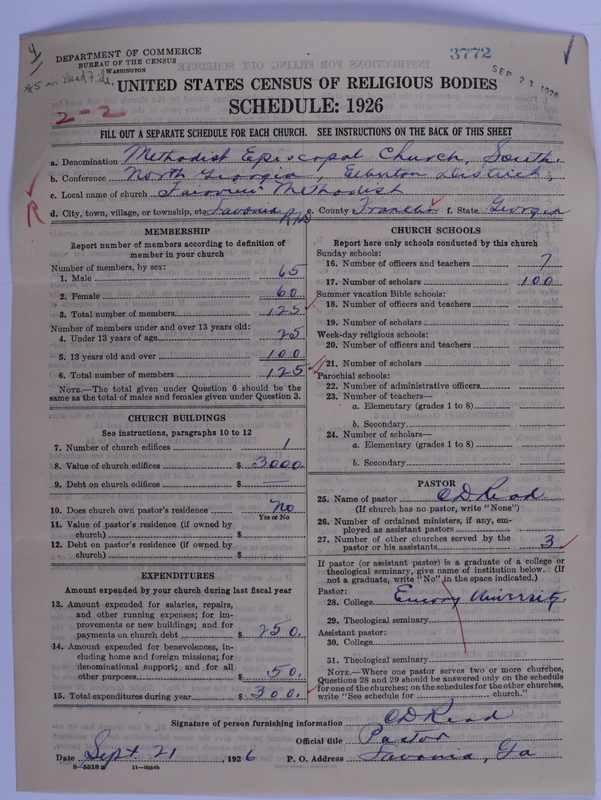 DEPARTMENT OF COMMERCE
BUREAU OF THE CENSUS
WASHINGTON
3772
SEP 23 1926
UNITED STATES CENSUS OF RELIGIOUS BODIES
SCHEDULE: 1926
2-2
FILL OUT A SEPARATE SCHEDULE FOR EACH CHURCH. SEE INSTRUCTIONS ON THE BACK OF THIS SHEET
a. Denomination Methodist Episcopal Church, South.
b. Conference North Georgia, Elberton District,
c. Local name of church Methodist
d. City, town, village, or township, etc. Lavonia e. County Franklin f. State Georgia
MEMBERSHIP
Report number of members according to definition of
member in your church
Number of members, by sex:
1. Male 65
2. Female 60
3. Total number of members 125
Number of members under and over 13 years old:
4. Under 13 years of age 25
5. 13 years old and over 100
6. Total number of members 125
NOTE.—The total given under Question 6 should be the
same as the total of males and females given under Question 3.
CHURCH BUILDINGS
See instructions, paragraphs 10 to 12
7. Number of church edifices 1
8. Value of church edifices $ 3000
9. Debt on church edifices $
10. Does church own pastor's residence No
Yes or No
11. Value of pastor's residence (if owned by
church) $
12. Debt on pastor's residence (if owned by
church) $
EXPENDITURES
Amount expended by your church during last fiscal year
13. Amount expended for salaries, repairs,
and other running expenses; for im-
provements or new buildings; and for
payments on church debt $ 250.
14. Amount expended for benevolences, in-
cluding home and foreign missions; for
denominational support; and for all
other purposes $ 50.
15. Total expenditures during year $ 300.
CHURCH SCHOOLS
Report here only schools conducted by this church
Sunday schools:
16. Number of officers and teachers 7
17. Number of scholars 100
Summer vacation Bible schools:
18. Number of officers and teachers
19. Number of scholars
Week-day religious schools:
20. Number of officers and teachers
21. Number of scholars
Parochial schools:
22. Number of administrative officers
23. Number of teachers—
a. Elementary (grades 1 to 8)
b. Secondary
24. Number of scholars—
a. Elementary (grades 1 to 8)
b. Secondary
PASTOR
25. Name of pastor C D Read
(If church has no pastor, write "None")
26. Number of ordained ministers, if any, em-
ployed as assistant pastors
27. Number of other churches served by the
pastor or his assistants 3
If pastor (or assistant pastor) is a graduate of a college or
theological seminary, give name of institution below. (If
not a graduate, write "No" in the space indicated.)
Pastor:
28. College Emory University
29. Theological seminary
Assistant pastor:
30. College
31. Theological seminary
NOTE.—Where one pastor serves two or more churches,
Questions 28 and 29 should be answered only on the schedule
for one of the churches; on the schedules for the other churches,
write "See schedule for church."
Signature of person furnishing information C D Read
Official title Pastor
Date Sept 21, 1926 P. O. Address Lavonia, Ga
8-5518 a 11-9054b